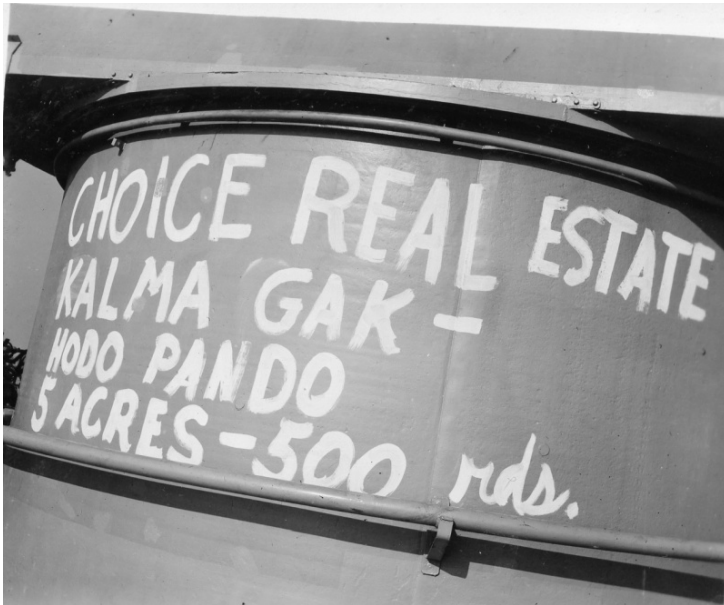 CHOICE REAL ESTATE
KALMA GAK -
HODO PANDO
5 ACRES - 500 rds.